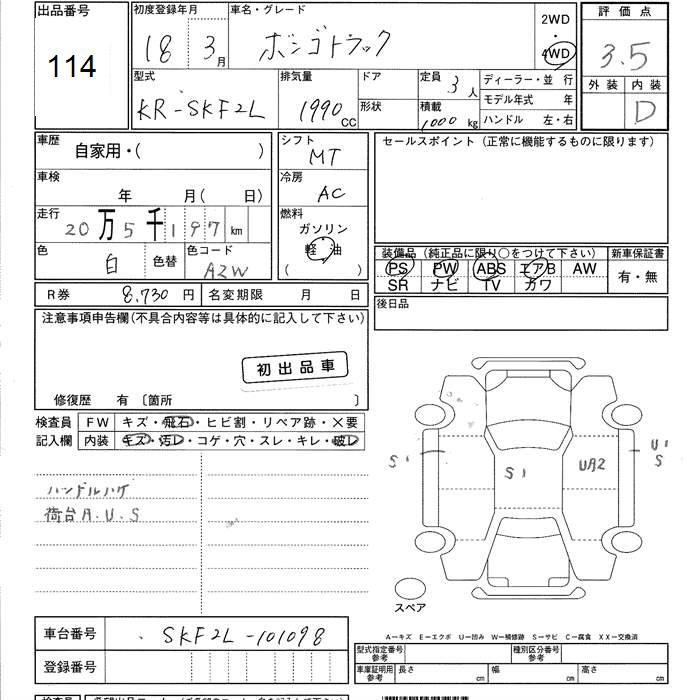 出品番号
114
初度登録年月
18 3月
車名・グレード
ボンゴトラック
2WD
4WD
評価点
3.5
外装 内装
D
型式
KR-SKF2L
排気量
1990cc
ドア
形状
定員
3人
積載
1000kg
ディーラー・並 行
モデル年式 年
ハンドル 左・右
車歴
自家用・( )
シフト
MT
セールスポイント(正常に機能するものに限ります)
車検
年 月( 日)
冷房
AC
走行
20万5千197km
燃料
ガソリン
軽 油
( )
色
白
色替
色コード
A2W
装備品(純正品に限り○をつけて下さい)
PS PW ABS エアB AW
SR ナビ TV カワ
新車保証書
有・無
R券 8,730円 名変期限 月 日
後日品
注意事項申告欄(不具合内容等は具体的に記入して下さい)
初出品車
修復歴 有〔箇所 〕
検査員
記入欄
FW キズ・飛石・ヒビ割・リペア跡・×要
内装 キズ・汚レ・コゲ・穴・スレ・キレ・破レ
ハンドルハゲ
荷台A.U.S
S1
S1
UA2
U1
S
スペア
車台番号 SKF2L-101098
登録番号
A-キズ E-エクボ U-凹み W-補修跡 S-サビ C-腐食 XX-交換済
型式指定番号
参考
種別区分番号
参考
車庫証明用
参考
長さ cm 幅 cm 高さ cm